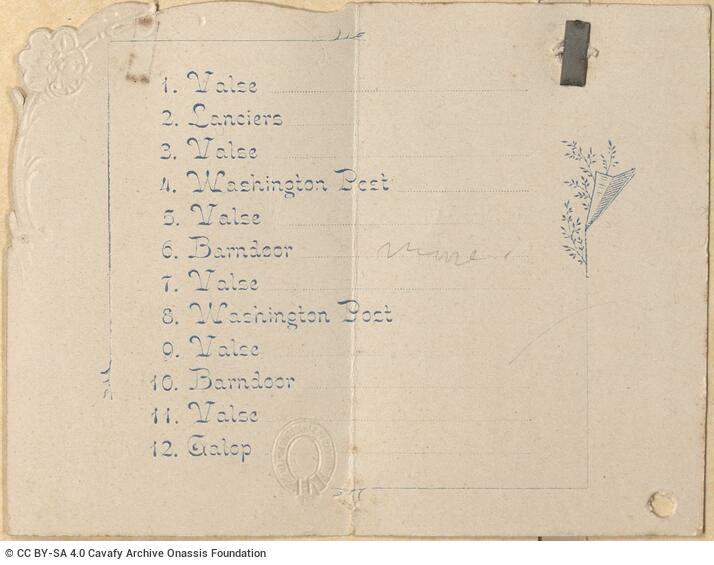 1. Valse
2. Lanciers
3. Valse
4. Washington Post
5. Valse
6. Barndoor
7. Valse
8. Washington Post
9. Valse
10. Barndoor
11. Valse
12. Galop
© CC BY-SA 4.0 Cavafy Archive Onassis Foundation